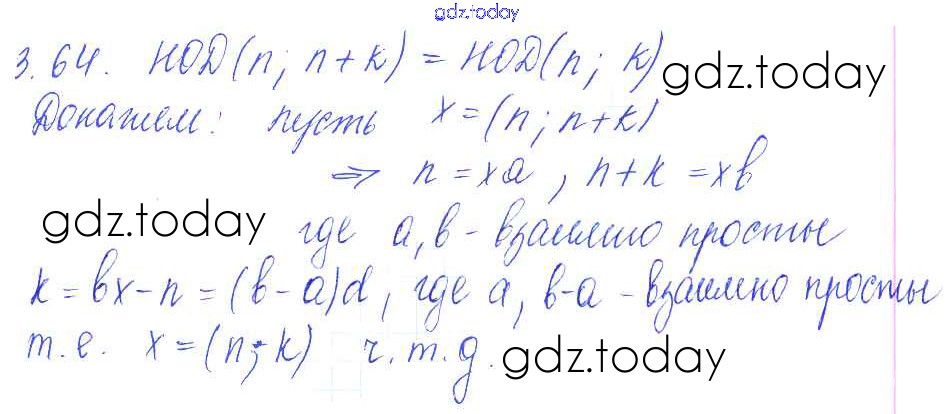 gdz.today
3.64. НОД(n; n+k) = НОД(n; k)
gdz.today
Докажем: пусть x=(n; n+k)
⇒ n = xa, n+k = xв
gdz.today
где a, в - взаимно простые
k = вx - n = (в - a)d, где a, в-a - взаимно простые
т.е. x = (n; k) ч.т.д.
gdz.today